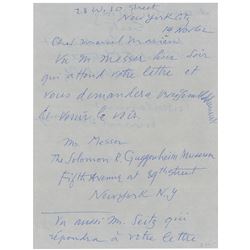 28 W. 10 Street
New York City
14 Nov 62
Cher Marcel Mariën
Vu M. Messer hier soir
qui attend votre lettre et
vous demandera
le voir.
Mr. Messer
The Solomon R. Guggenheim Museum
Fifth Avenue at 89th Street
New York N.Y
Vu aussi M. Seitz qui
répondra à votre lettre.